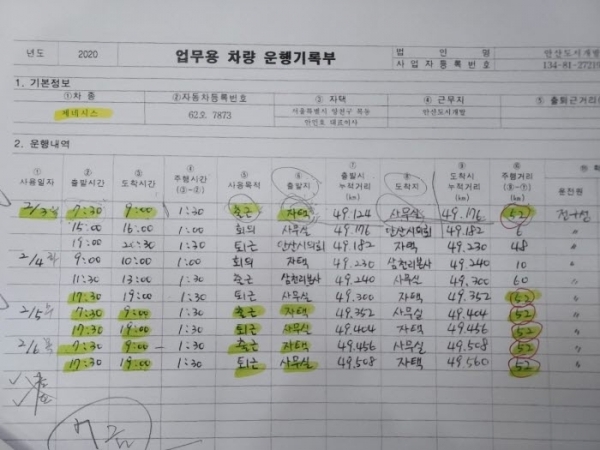 년도 2020 업무용 차량 운행기록부 법인명 안산도시개발
사업자등록번호 134-81-2721
1. 기본정보
①차종 ②자동차등록번호 ③자택 ④근무지 ⑤출퇴근거리(
제네시스 62오 7873 서울특별시 양천구 목동 안산도시개발
안민호 대표이사
2. 운행내역
①사용일자 ②출발시간 ③도착시간 ④주행시간 (③-②) ⑤사용목적 ⑥출발지 ⑦출발시 누적거리 (km) ⑧도착지 ⑨도착시 누적거리 (km) ⑩주행거리 (⑨-⑦) (km) 운전원
2/3 7:30 9:00 1:30 출근 자택 49.124 사무실 49.176 52
15:00 16:00 1:00 회의 사무실 49.176 안산시의회 49.182 6 〃
19:00 20:30 1:30 퇴근 안산시의회 49.182 자택 49.230 48 〃
2/4 화 9:00 10:00 1:00 회의 자택 49.230 삼천리본사 49.240 10 〃
11:30 13:00 1:30 출근 삼천리본사 49.240 사무실 49.300 60 〃
17:30 19:00 1:30 퇴근 사무실 49.300 자택 49.352 52 〃
2/5 수 7:30 9:00 1:30 출근 자택 49.352 사무실 49.404 52 〃
17:30 19:00 1:30 퇴근 사무실 49.404 자택 49.456 52 〃
2/6 목 7:30 9:00 1:30 출근 자택 49.456 사무실 49.508 52 〃
17:30 19:00 1:30 퇴근 사무실 49.508 자택 49.560 52 〃